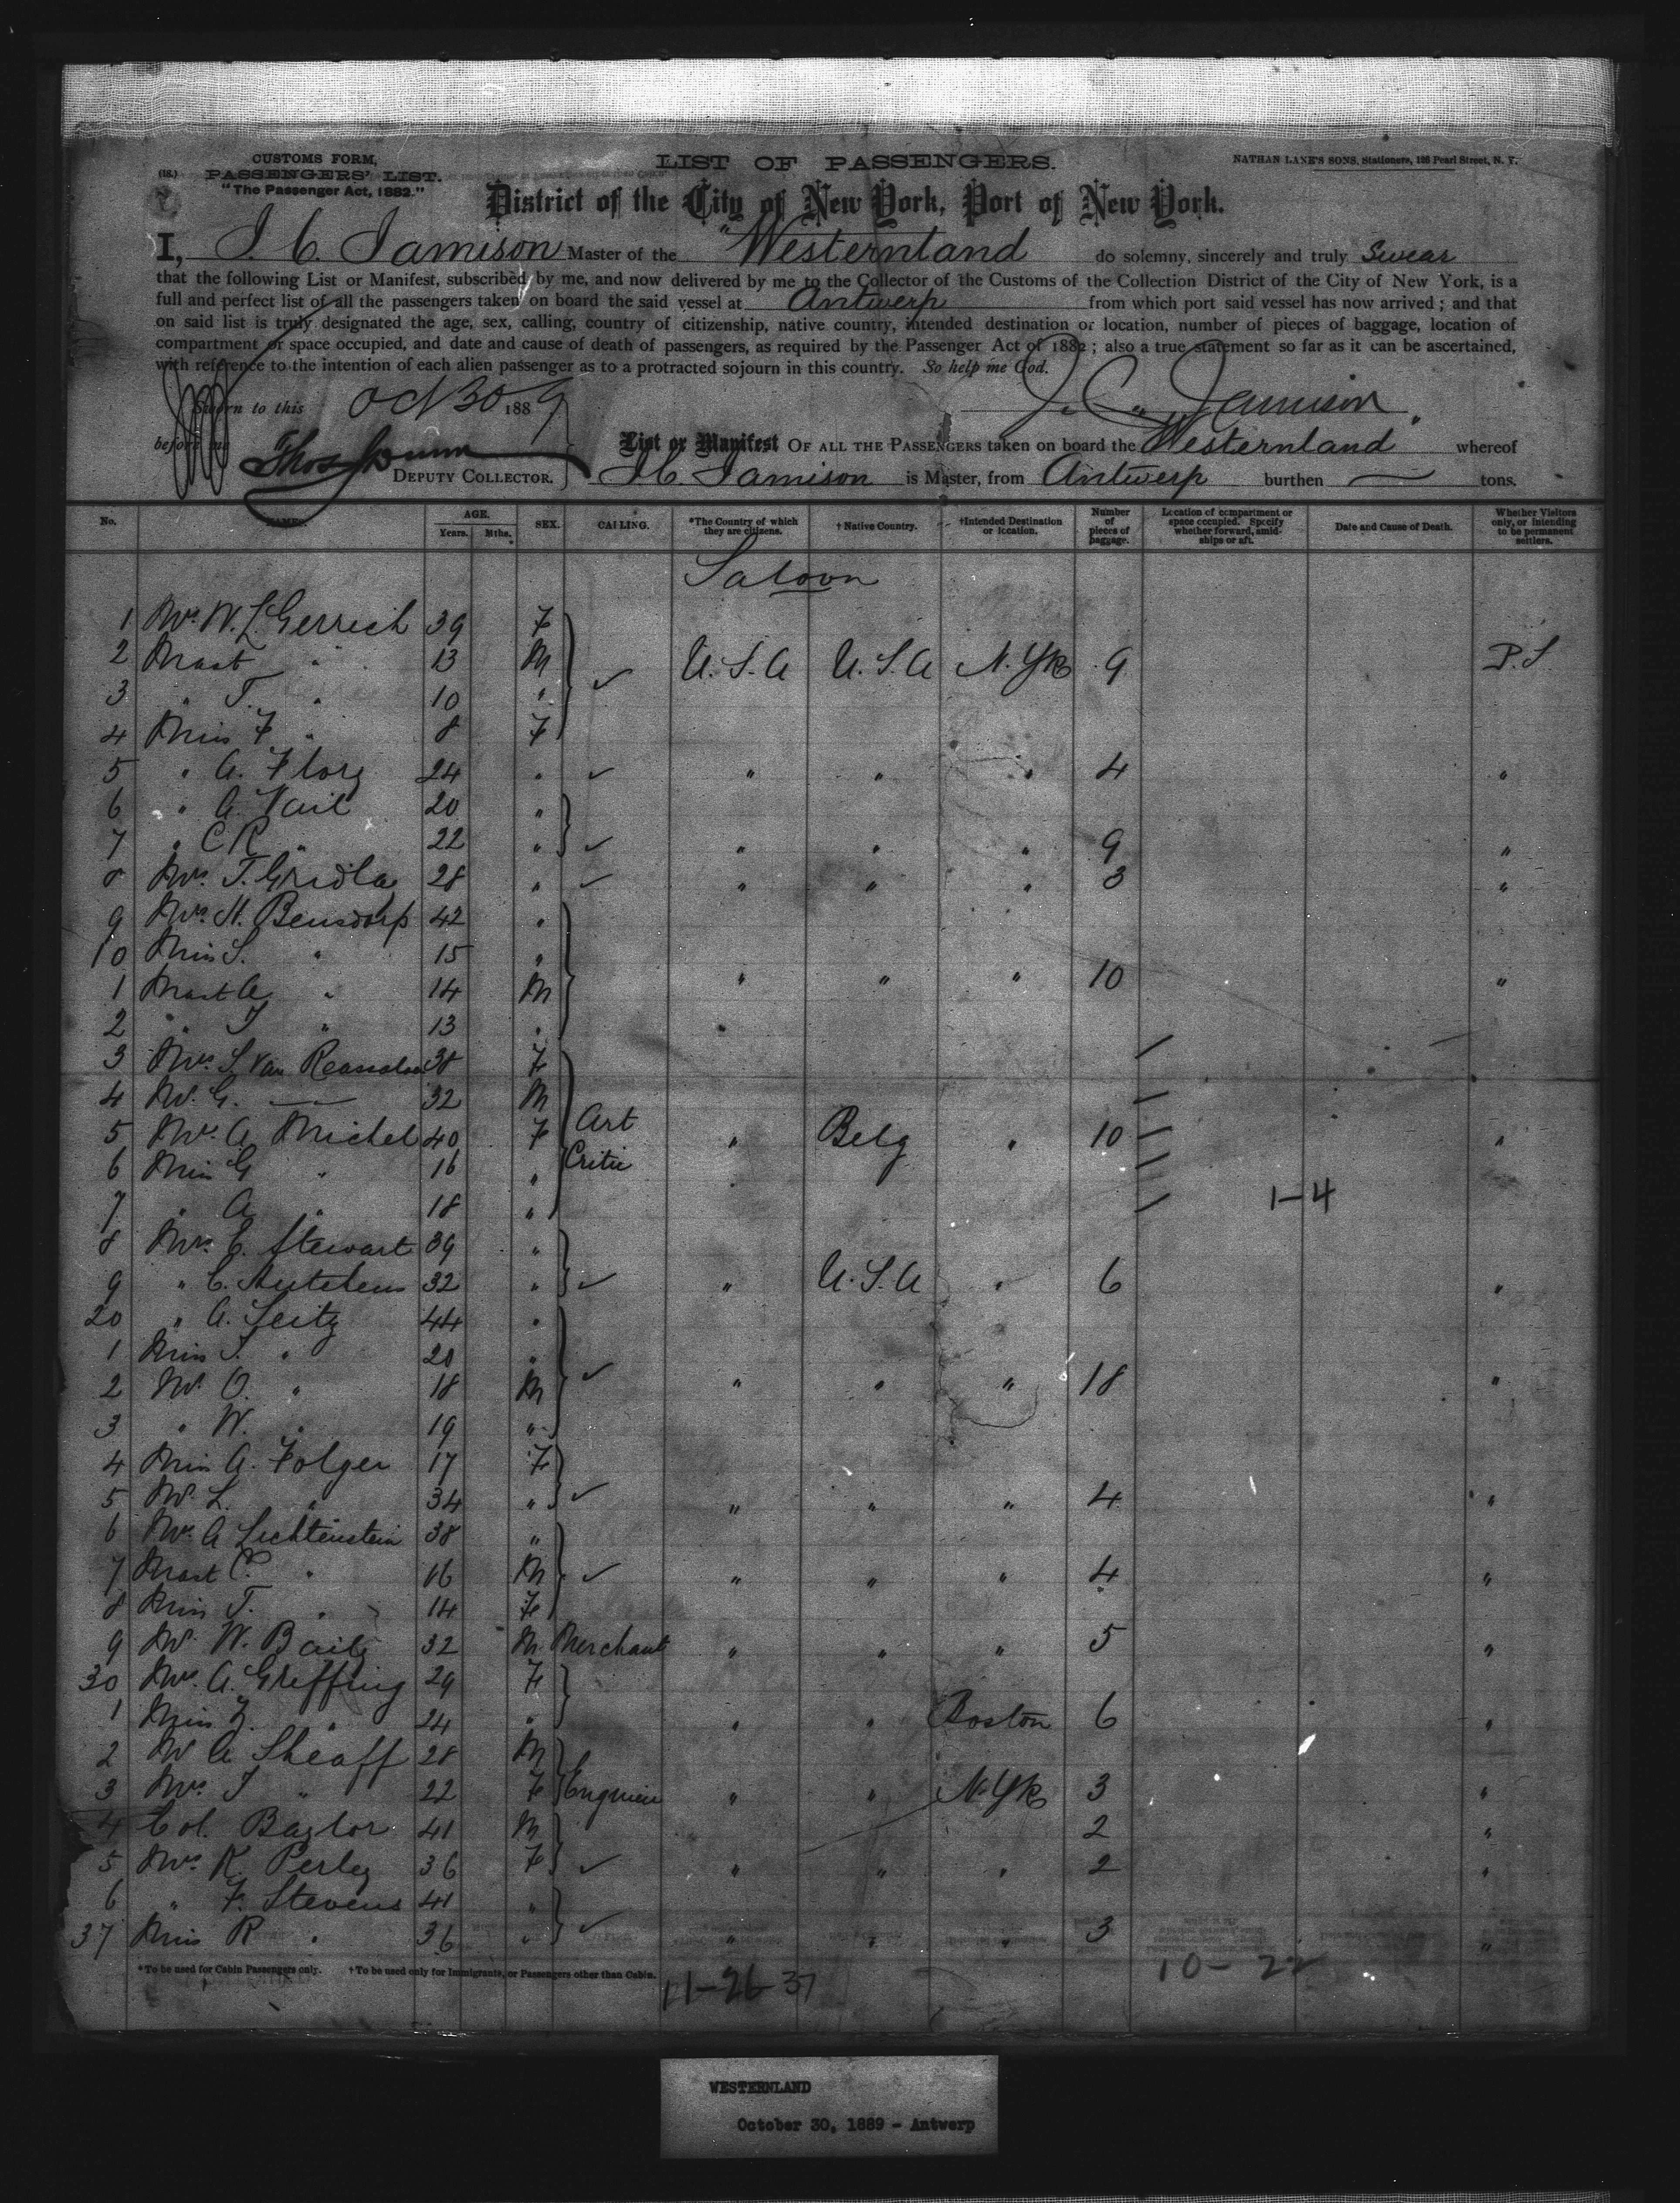 CUSTOMS FORM,
(18.) PASSENGERS' LIST.
"The Passenger Act, 1882."
LIST OF PASSENGERS.
NATHAN LANE'S SONS, Stationers, 126 Pearl Street, N. Y.
District of the City of New York, Port of New York.
I, J. C. Jamison Master of the "Westernland do solemny, sincerely and truly Swear
that the following List or Manifest, subscribed by me, and now delivered by me to the Collector of the Customs of the Collection District of the City of New York, is a
full and perfect list of all the passengers taken on board the said vessel at Antwerp from which port said vessel has now arrived; and that
on said list is truly designated the age, sex, calling, country of citizenship, native country, intended destination or location, number of pieces of baggage, location of
compartment or space occupied, and date and cause of death of passengers, as required by the Passenger Act of 1882; also a true statement so far as it can be ascertained,
with reference to the intention of each alien passenger as to a protracted sojourn in this country. So help me God.
Sworn to this Oct 30 1889
J. C. Jamison
before me
DEPUTY COLLECTOR.
List or Manifest OF ALL THE PASSENGERS taken on board the Westernland" whereof
J C Jamison is Master, from Antwerp burthen — tons.
No. NAMES. AGE. Years. Mths. SEX. CALLING. *The Country of which they are citizens. †Native Country. †Intended Destination or location. Number of pieces of baggage. Location of compartment or space occupied. Specify whether forward, amidships or aft. Date and Cause of Death. Whether Visitors only, or intending to be permanent settlers.
Saloon
1 Mrs W. L. Gerrich 39 F
2 Mast " 13 M U.S.A U.S.A N.Yk 9 P.S
3 " T. " 10 "
4 Miss F " 8 F
5 " A. Flory 24 " ✓ " " " 4 "
6 " A. Vail 20 "
7 " C R " 22 " ✓ " " " 9 "
8 Mrs. T. Gridley 28 " ✓ " " " 3 "
9 Mrs H. Bensdorp 42 "
10 Miss S. " 15 " " " " 10 "
1 Mast A " 14 M
2 " T " 13 "
3 Mrs. S Van 38 F
4 Mr. G. — 32 M
5 Mrs. A Michel 40 F Art " Belg " 10 "
6 Miss G " 16 " Critic
7 " A " 18 " 1-4
8 Mrs. E. Stewart 39 "
9 " C. Hutchens 32 " ✓ " U.S.A " 6 "
20 " A. Seitz 44 "
1 Miss T. " 20 "
2 Mr. O. " 18 M ✓ " " " 18 "
3 " W. " 19 "
4 Miss A. Folger 17 F
5 Mr. L. " 34 " ✓ " " " 4 "
6 Mrs. A Lichtenstein 38 "
7 Mast C. " 16 M ✓ " " " 4 "
8 Miss T. " 14 F
9 Mr. W. Baily 32 M Merchant " " " 5 "
30 Mrs. A. Greffing 29 F
1 Miss " 24 " " " Boston 6 "
2 Mr A Sheaff 28 M
3 Mrs T " 22 F Engineer " " N.Yk 3 "
4 Col. Baylor 41 M 2 "
5 Mrs K. Perley 36 F ✓ " " " 2 "
6 " F. Stevens 41 "
37 Miss R " 36 " ✓ " " " 3 "
*To be used for Cabin Passengers only. †To be used only for Immigrants, or Passengers other than Cabin.
11-26-37
10-22
WESTERNLAND
October 30, 1889 - Antwerp